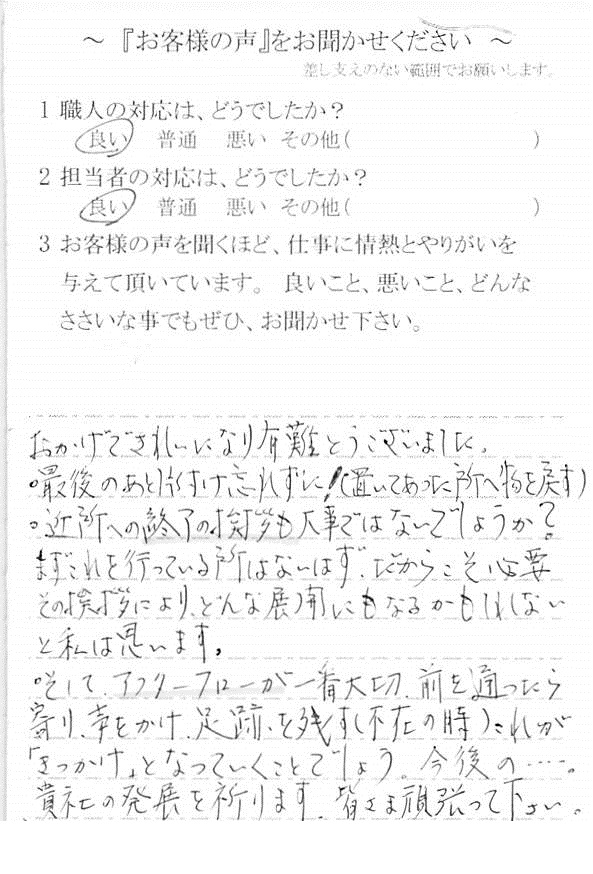 ～ 『お客様の声』をお聞かせください ～
差し支えのない範囲でお願いします。
1 職人の対応は、どうでしたか？
良い 普通 悪い その他( )
2 担当者の対応は、どうでしたか？
良い 普通 悪い その他( )
3 お客様の声を聞くほど、仕事に情熱とやりがいを
与えて頂いています。 良いこと、悪いこと、どんな
ささいな事でもぜひ、お聞かせ下さい。
おかげできれいになり有難とうございました。
・最後のあと片付け忘れずに！(置いてあった所へ物を戻す)
・近所への終了の挨拶も大事ではないでしょうか？
まずこれを行っている所はないはず、だからこそ必要
その挨拶により、どんな展開にもなるかもしれない
と私は思います。
・そして、アフターフローが一番大切、前を通ったら
寄り、声をかけ、足跡、を残す(不在の時)これが
「きっかけ」となっていくことでしょう。今後の……。
貴社の発展を祈ります、皆さま頑張って下さい。